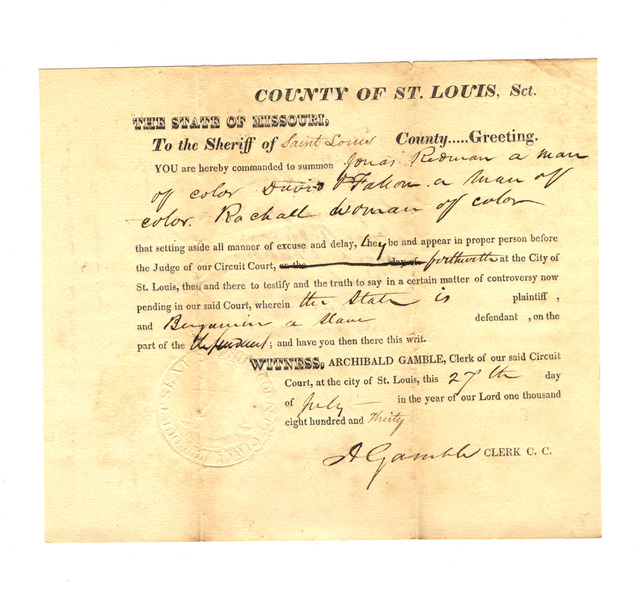 COUNTY OF ST. LOUIS, Sct.
THE STATE OF MISSOURI,
To the Sheriff of Saint Louis County.....Greeting.
YOU are hereby commanded to summon Jonas Redman a man
of color David Fallon a man of
color. Rachall woman of color
that setting aside all manner of excuse and delay, they be and appear in proper person before
the Judge of our Circuit Court, on the day of forthwith at the City of
St. Louis, then and there to testify and the truth to say in a certain matter of controversy now
pending in our said Court, wherein the State is plaintiff ,
and Benjamin a Slave defendant , on the
part of the ; and have you then there this writ.
WITNESS, ARCHIBALD GAMBLE, Clerk of our said Circuit
Court, at the city of St. Louis, this 27th day
of July in the year of our Lord one thousand
eight hundred and Thirty
A Gamble CLERK C. C.